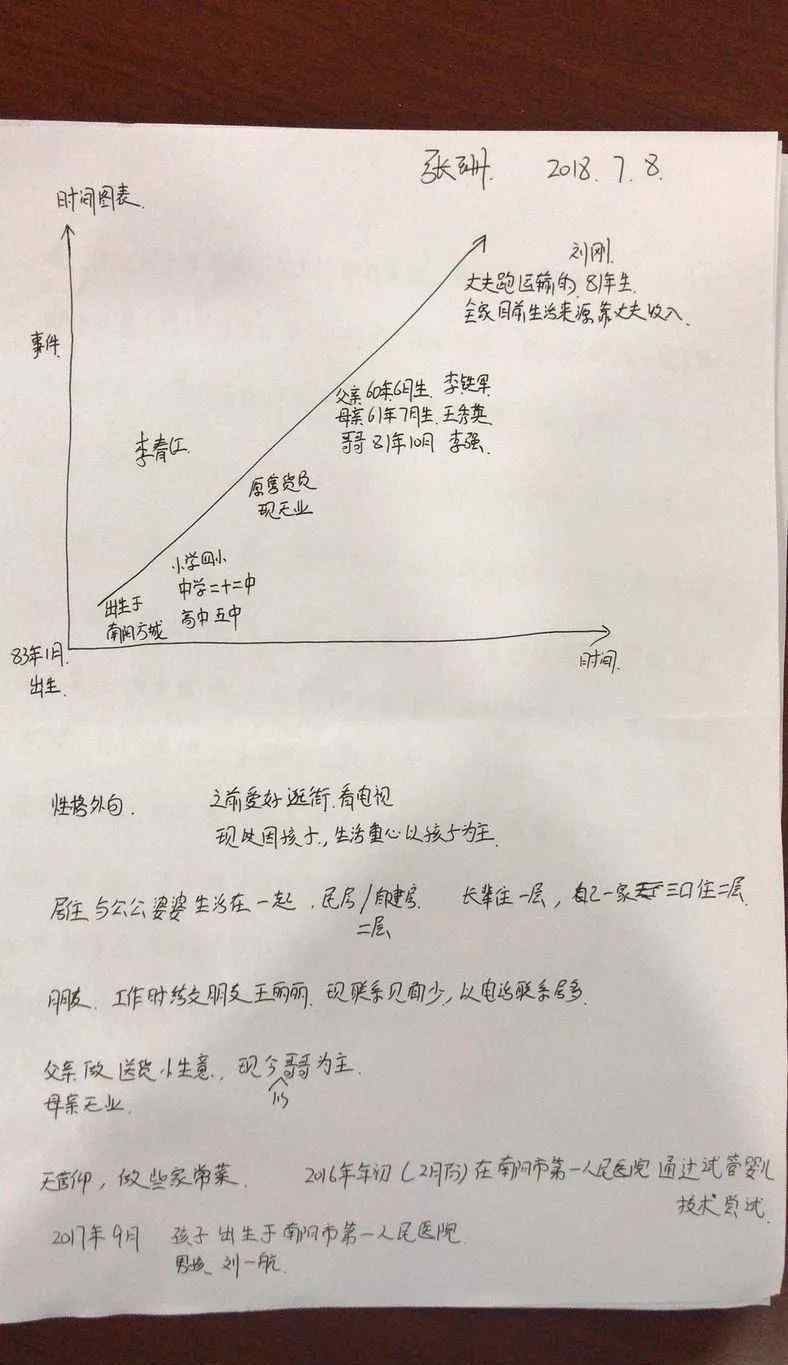 张珊. 2018.7.8.
时间图表.
刘刚.
丈夫跑运输的 81年生.
全家目前生活来源靠丈夫收入.
事件
父亲60年6月生. 李铁军
母亲61年7月生. 王秀英
哥哥81年10月 李强.
李春江
原售货员
现无业
小学四小
中学二十二中
高中五中
出生于
南阳方城
83年1月.
出生.
时间.
性格外向. 之前爱好逛街.看电视
现处因孩子.,生活重心以孩子为主.
居住与公公婆婆生活在一起.民房/自建房. 长辈住一层,自己一家三口住二层.
二层.
朋友. 工作时结交朋友王丽丽.现联系见面少,以电话联系居多.
父亲做送货小生意.,现今哥哥为主.
母亲无业.
无信仰,做些家常菜. 2016年年初(2月份)在南阳市第一人民医院通过试管婴儿
技术尝试.
2017年9月 孩子出生于南阳市第一人民医院.
男孩. 刘一航.